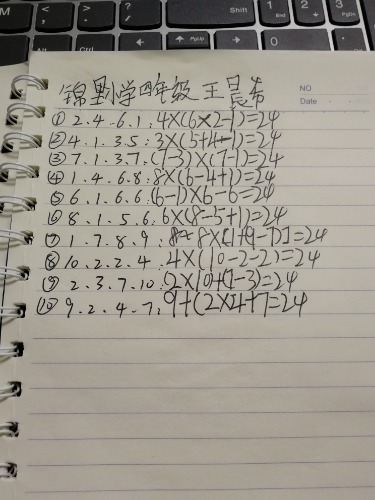 M < , > . ? / Shift 1 End 2 ↓ 3 PgDn
Alt Ctrl PgUp 0
NO
Date
锦里小学四年级 王晨希
① 2.4.6.1: 4×(6×2-1)=24
② 4.1.3.5: 3×(5+4-1)=24
③ 7.1.3.7: (7-3)×(7-1)=24
④ 1.4.6.8: 8×(6-4+1)=24
⑤ 6.1.6.6: (6-1)×6-6=24
⑥ 8.1.5.6: 6×(8-5+1)=24
⑦ 1.7.8.9: 8×[1+(9-7)]=24
⑧ 10.2.2.4: 4×(10-2-2)=24
⑨ 2.3.7.10: 2×10+(7-3)=24
⑩ 9.2.4.7: 9+(2×4+7=24